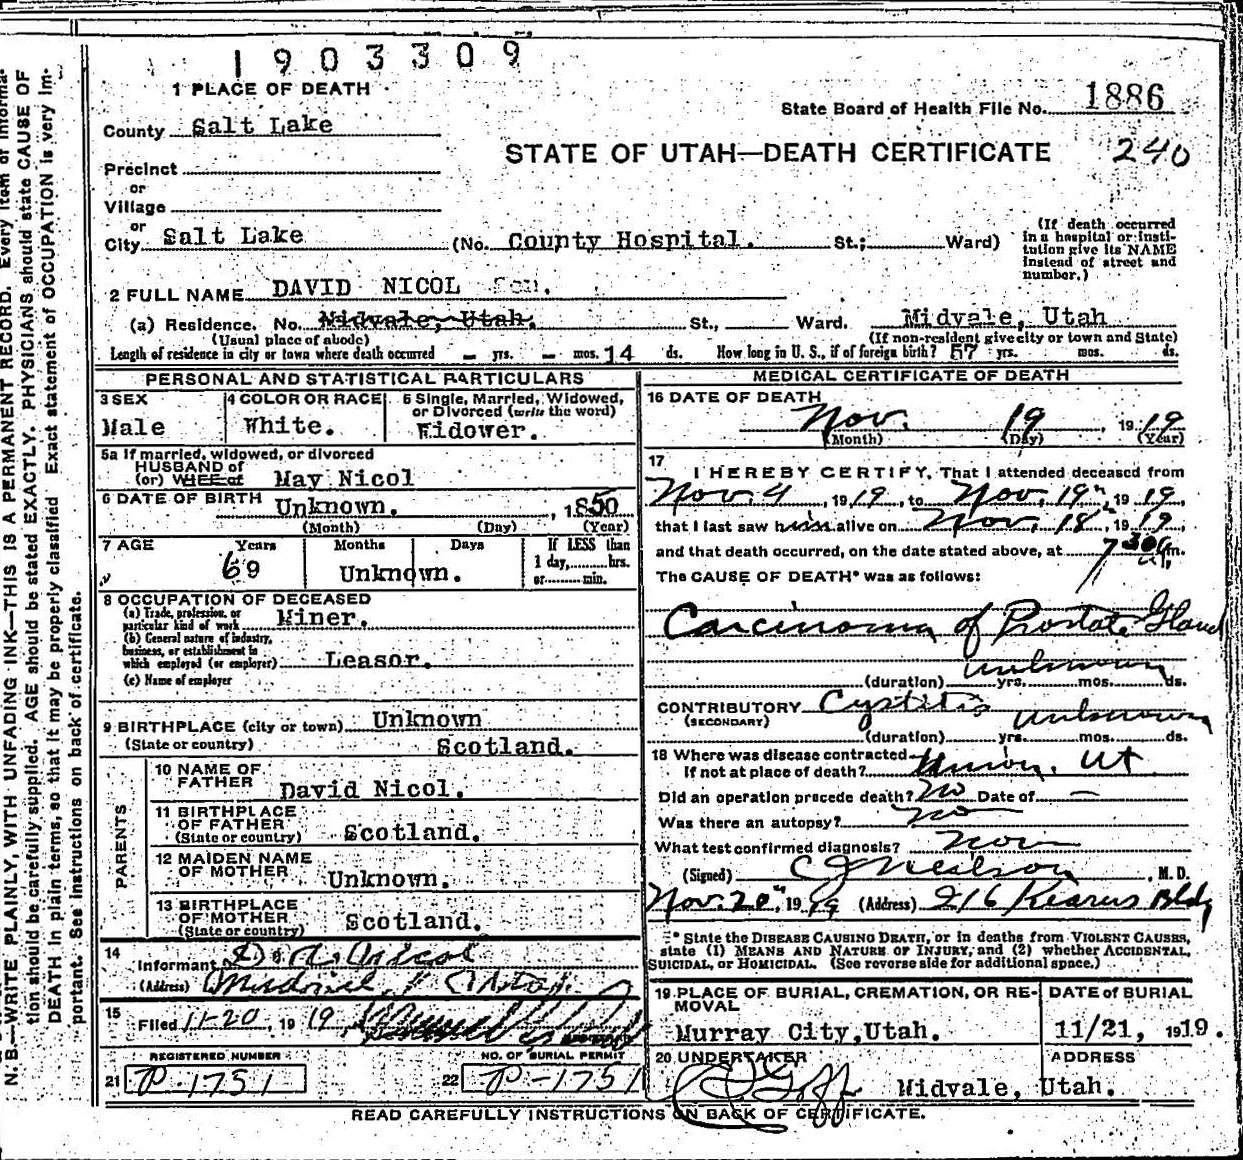 1903309
1 PLACE OF DEATH
State Board of Health File No. 1886
County Salt Lake
STATE OF UTAH—DEATH CERTIFICATE 240
Precinct
or
Village
or
City Salt Lake (No. County Hospital. St.; Ward)
(If death occurred in a hospital or insti-
tution give its NAME
instead of street and
number.)
2 FULL NAME DAVID NICOL Sen.
(a) Residence. No. Midvale, Utah. St., Ward. Midvale, Utah
(Usual place of abode) (If non-resident give city or town and State)
Length of residence in city or town where death occurred - yrs. - mos. 14 ds. How long in U. S., if of foreign birth? 57 yrs. mos. ds.
PERSONAL AND STATISTICAL PARTICULARS
3 SEX
Male
4 COLOR OR RACE
White.
5 Single, Married, Widowed,
or Divorced (write the word)
Widower.
5a If married, widowed, or divorced
HUSBAND of
(or) WIFE of May Nicol
6 DATE OF BIRTH Unknown. , 1850
(Month) (Day) (Year)
7 AGE Years Months Days
69 Unknown.
If LESS than
1 day, hrs.
or min.
8 OCCUPATION OF DECEASED
(a) Trade, profession, or
particular kind of work Miner.
(b) General nature of industry,
business, or establishment in
which employed (or employer) Leasor.
(c) Name of employer
9 BIRTHPLACE (city or town) Unknown
(State or country) Scotland.
PARENTS
10 NAME OF
FATHER David Nicol.
11 BIRTHPLACE
OF FATHER
(State or country) Scotland.
12 MAIDEN NAME
OF MOTHER Unknown.
13 BIRTHPLACE
OF MOTHER
(State or country) Scotland.
14
Informant D. A. Nicol
(Address) Midvale, Utah.
15
Filed 11-20, 1919,
REGISTERED NUMBER
21 P-1751
NO. OF BURIAL PERMIT
22 P-1751
MEDICAL CERTIFICATE OF DEATH
16 DATE OF DEATH
Nov. 19, 1919
(Month) (Day) (Year)
17
I HEREBY CERTIFY, That I attended deceased from
Nov. 4, 1919, to Nov. 19", 1919,
that I last saw him alive on Nov. 18", 1919,
and that death occurred, on the date stated above, at 7 30 a m.
The CAUSE OF DEATH* was as follows:
Carcinoma of Prostate Gland
unknown
(duration) yrs. mos. ds.
CONTRIBUTORY Cystitis
(SECONDARY) unknown
(duration) yrs. mos. ds.
18 Where was disease contracted
If not at place of death? Union. Ut
Did an operation precede death? No Date of —
Was there an autopsy? no
What test confirmed diagnosis? non
(Signed) C J Neilson, M. D.
Nov. 20", 1919 (Address) 216 Kearns Bldg
* State the DISEASE CAUSING DEATH, or in deaths from VIOLENT CAUSES,
state (1) MEANS AND NATURE OF INJURY, and (2) whether ACCIDENTAL,
SUICIDAL, or HOMICIDAL. (See reverse side for additional space.)
19 PLACE OF BURIAL, CREMATION, OR RE-
MOVAL
Murray City, Utah.
DATE of BURIAL
11/21, 1919.
20 UNDERTAKER ADDRESS
Goff Midvale, Utah.
READ CAREFULLY INSTRUCTIONS ON BACK OF CERTIFICATE.
N. B.—WRITE PLAINLY, WITH UNFADING INK—THIS IS A PERMANENT RECORD. Every item of informa-
tion should be carefully supplied. AGE should be stated EXACTLY. PHYSICIANS should state CAUSE OF
DEATH in plain terms, so that it may be properly classified. Exact statement of OCCUPATION is very im-
portant. See instructions on back of certificate.